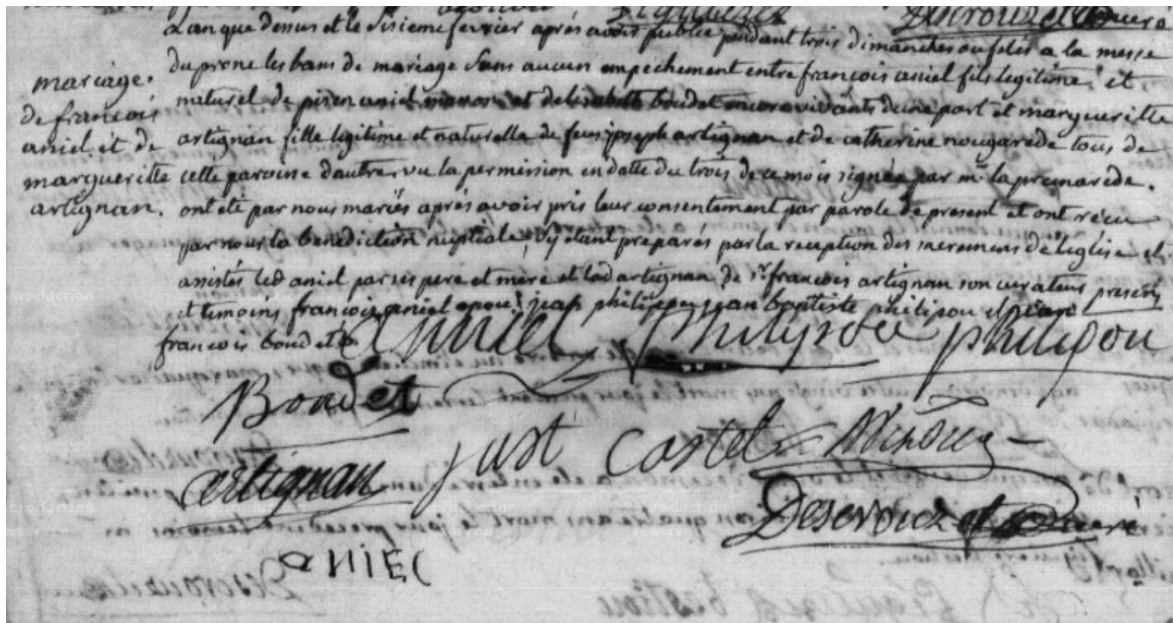 mariage
de francois
aniel et de
margueritte
artignan.
Lan que dessus et le sisieme fevrier après avoir publié pendant trois dimanches ou fetes a la messe
du prone les bans de mariage sans aucun empechement entre francois aniel fils legitime et
naturel de aniel et delisabeth boudet encore vivants dune part et margueritte
artignan fille legitime et naturelle de feu joseph artignan et de catherine nougarede tous de
cette paroisse dautre, vu la permission en datte du trois de ce mois signée par mr lapremarede.
ont été par nous mariés après avoir pris leur consentement par parole de present et ont recu
par nous la benediction nuptiale, sy etant preparés par la reception des sacremens de leglise
assistés led aniel par ses pere et mere et lad artignan de sr francois artignan son curateur presents
et temoins francois aniel jean philipou jean baptiste philipou et
francois boudet
aniel philipou philipou
Boudet
just Castel
artignan
Descrouzet curé
aniel